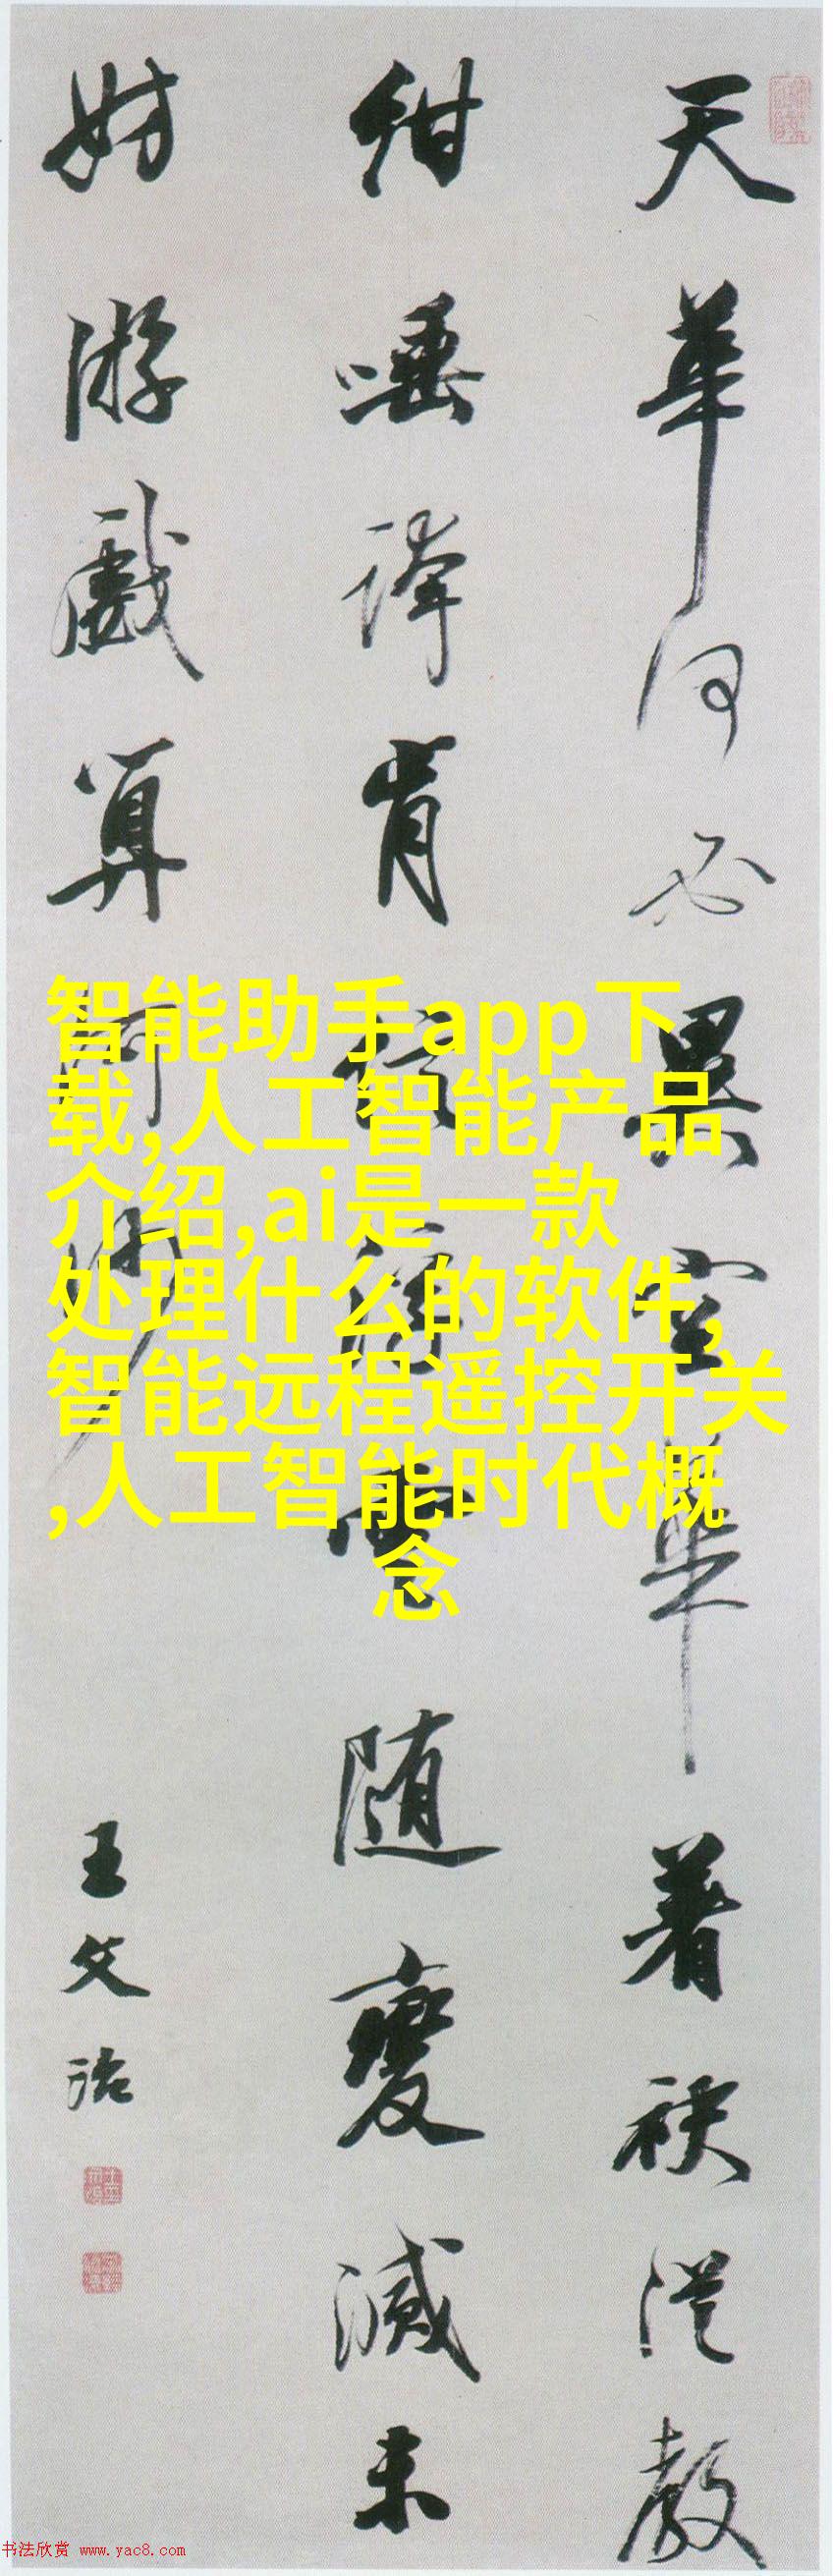 天華何必異空華著袂従教
紺唾浮肯　　　随變滅未
妨游戲算河沙
王文治
智能助手app下
载,人工智能产品
介绍,ai是一款
处理什么的软件,
智能远程遥控开关
,人工智能时代概
念
书法欣赏 www.yac8.com